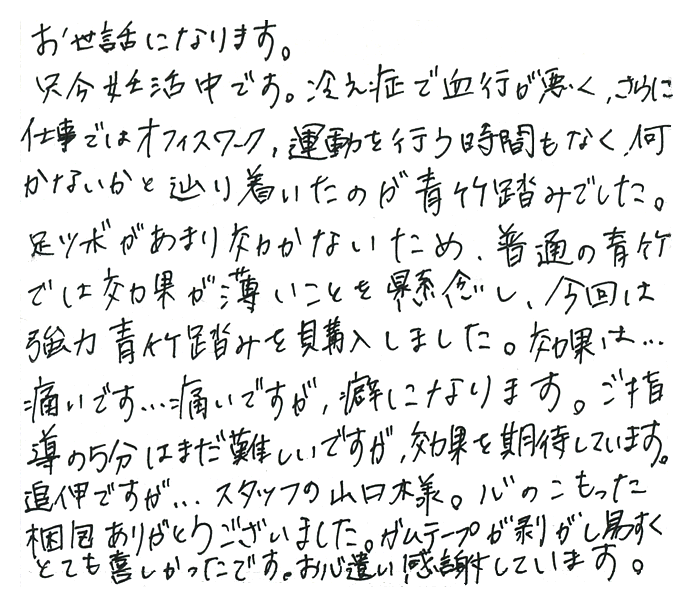 お世話になります。
只今妊活中です。冷え症で血行が悪く、さらに
仕事ではオフィスワーク、運動を行う時間もなく、何
かないかと辿り着いたのが青竹踏みでした。
足ツボがあまり効かないため、普通の青竹
では効果が薄いことを懸念し、今回は
強力青竹踏みを購入しました。効果は…
痛いです…痛いですが、癖になります。ご指
導の5分はまだ難しいですが、効果を期待しています。
追伸ですが…スタッフの山口様。心のこもった
梱包ありがとうございました。ガムテープが剥がし易すく
とても喜しかったです。お心遣い感謝しています。